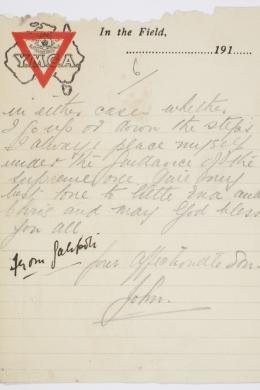 In the Field,
Y.M.C.A
191
6
in either case whether
I go up or down the steps
I always place myself
under the guidance of the
supreme one Give my
best love to little Ina and
Chris and may God bless
you all
from Galipoli
Your Affectionate Son
John.